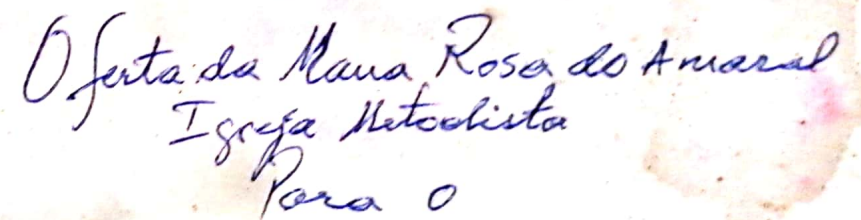 Oferta da Maria Rosa do Amaral
Igreja Metodista
Para o